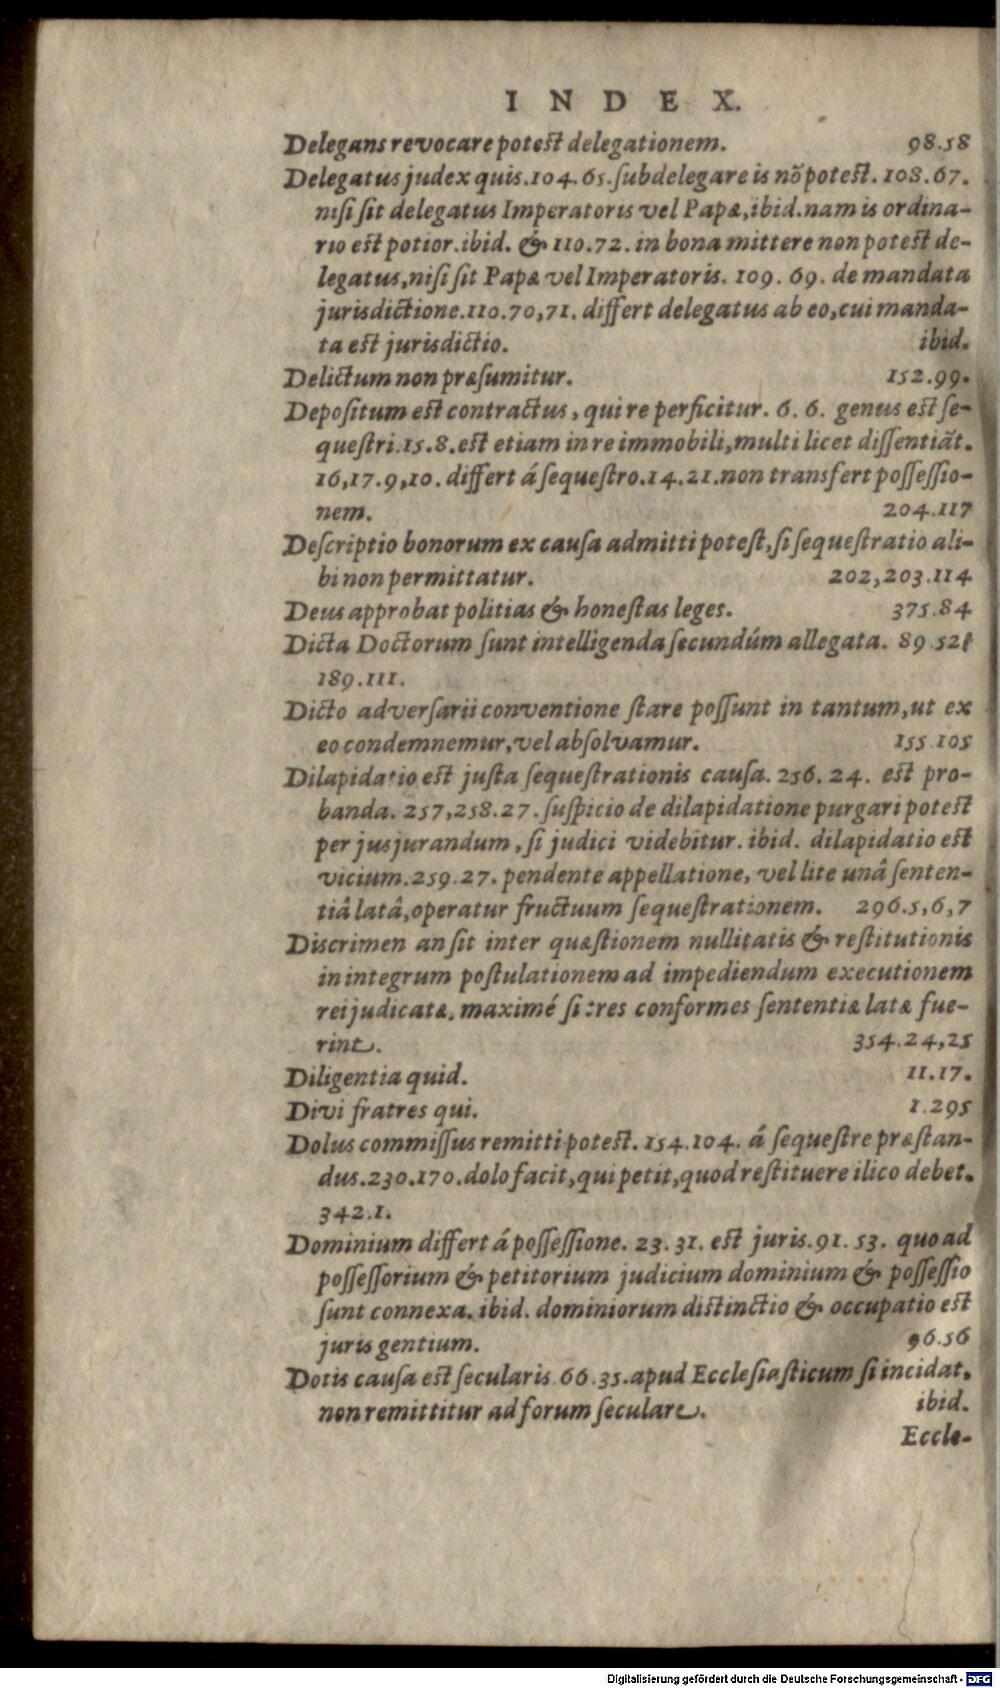 INDEX.
Delegans revocare potest delegationem. 98.58
Delegatus judex quis.104.65.subdelegare is nõ potest.108.67.
nisi sit delegatus Imperatoris vel Papæ,ibid.nam is ordina-
rio est potior.ibid. & 110.72. in bona mittere non potest de-
legatus,nisi sit Papæ vel Imperatoris. 109. 69. de mandata
jurisdictione.110.70,71. differt delegatus ab eo,cui manda-
ta est jurisdictio. ibid.
Delictum non præsumitur. 152.99.
Depositum est contractus, qui re perficitur. 6. 6. genus est se-
questri.15.8.est etiam in re immobili,multi licet dissentiãt.
16,17.9,10. differt á sequestro.14.21.non transfert possessio-
nem. 204.117
Descriptio bonorum ex causa admitti potest,si sequestratio ali-
bi non permittatur. 202,203.114
Deus approbat politias & honestas leges. 375.84
Dicta Doctorum sunt intelligenda secundúm allegata. 89.52
189.111.
Dicto adversarii conventione stare possunt in tantum,ut ex
eo condemnemur,vel absolvamur. 155.105
Dilapidatio est justa sequestrationis causa. 256. 24. est pro-
banda. 257,258.27. suspicio de dilapidatione purgari potest
per jusjurandum, si judici videbitur. ibid. dilapidatio est
vicium.259.27. pendente appellatione, vel lite unâ senten-
tiâ latâ,operatur fructuum sequestrationem. 296.5,6,7
Discrimen an sit inter quæstionem nullitatis & restitutionis
in integrum postulationem ad impediendum executionem
rei judicatæ, maximé si tres conformes sententiæ latæ fue-
rint. 354.24,25
Diligentia quid. 11.17.
Divi fratres qui. 1.295
Dolus commissus remitti potest. 154.104. á sequestre præstan-
dus.230.170.dolo facit,qui petit,quod restituere ilico debet.
342.1.
Dominium differt á possessione. 23.31. est juris.91. 53. quo ad
possessorium & petitorium judicium dominium & possessio
sunt connexa. ibid. dominiorum distinctio & occupatio est
juris gentium. 96.56
Dotis causa est secularis.66.35.apud Ecclesiasticum si incidat,
non remittitur ad forum seculare. ibid.
Eccle-
Digitalisierung gefördert durch die Deutsche Forschungsgemeinschaft - DFG